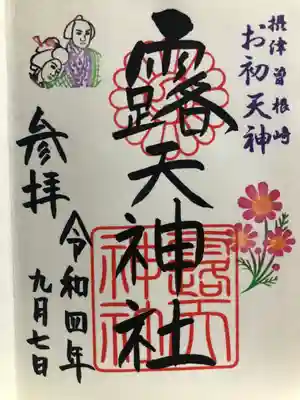 摂津曽根崎
お初天神
露天神社
参拝
令和四年
九月七日
露天
神社